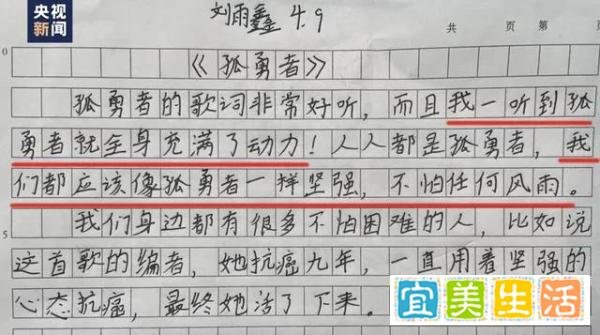 央视新闻
刘雨鑫 4.9
共 页 第 页
0
《孤勇者》
孤勇者的歌词非常好听，而且我一听到孤
勇者就全身充满了动力！人人都是孤勇者，我
们都应该像孤勇者一样坚强，不怕任何风雨。
5
我们身边都有很多不怕困难的人，比如说
这首歌的编者，她抗癌九年，一直用着坚强的
心态抗癌，最终她活了下来。
宜美生活